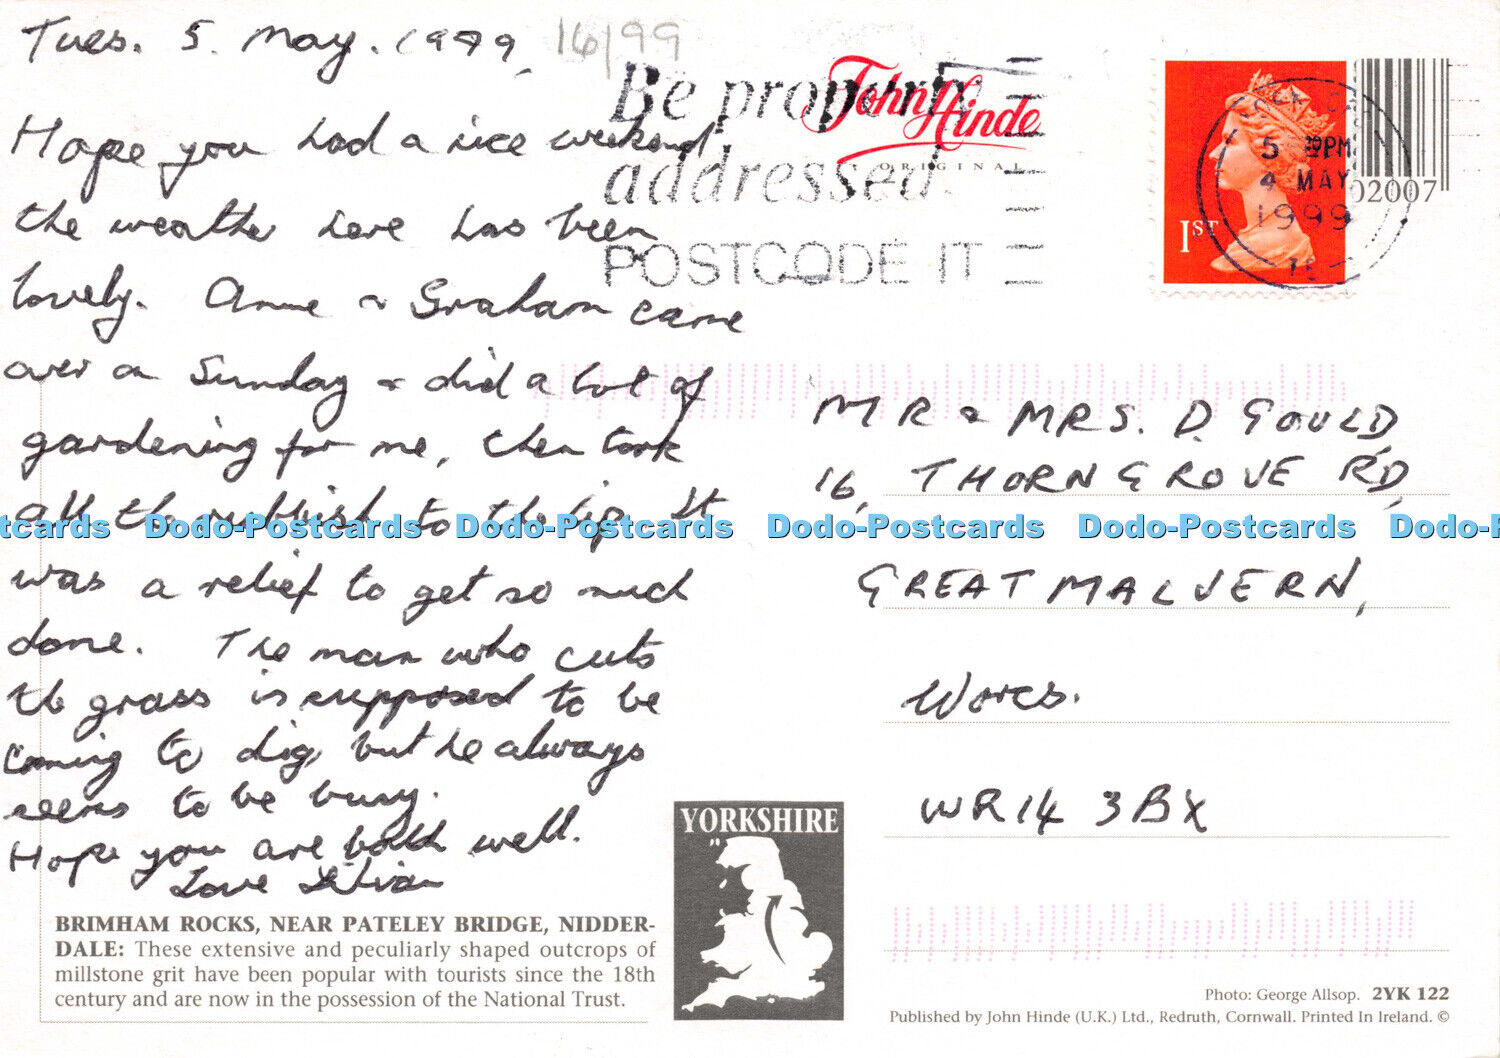 Tues. 5. May. 1999,
16/99
Hope you had a nice weekend
the weather here has been
lovely. Anne & Graham came
over on Sunday & did a lot of
gardening for me, then took
all the rubbish to the tip. It
was a relief to get so much
done. The man who cuts
the grass is supposed to be
coming to dig, but he always
seems to be busy.
Hope you are both well.
Love Lilian
BRIMHAM ROCKS, NEAR PATELEY BRIDGE, NIDDER-
DALE: These extensive and peculiarly shaped outcrops of
millstone grit have been popular with tourists since the 18th
century and are now in the possession of the National Trust.
YORKSHIRE
Be properly
addressed
POSTCODE IT
John Hinde
ORIGINAL
1ST
5 PM
4 MAY
1999
02007
MR & MRS. D. GOULD,
16, THORNGROVE RD,
GREAT MALVERN,
Worcs.
WR14 3BX
Photo: George Allsop. 2YK 122
Published by John Hinde (U.K.) Ltd., Redruth, Cornwall. Printed In Ireland. ©
Dodo-Postcards Dodo-Postcards Dodo-Postcards Dodo-Postcards